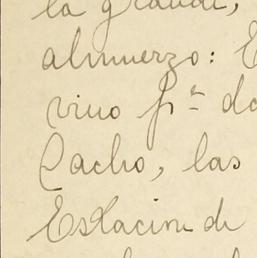 la grande,
almuerzo: E
vino pr do
Cacho, las
Estacion de